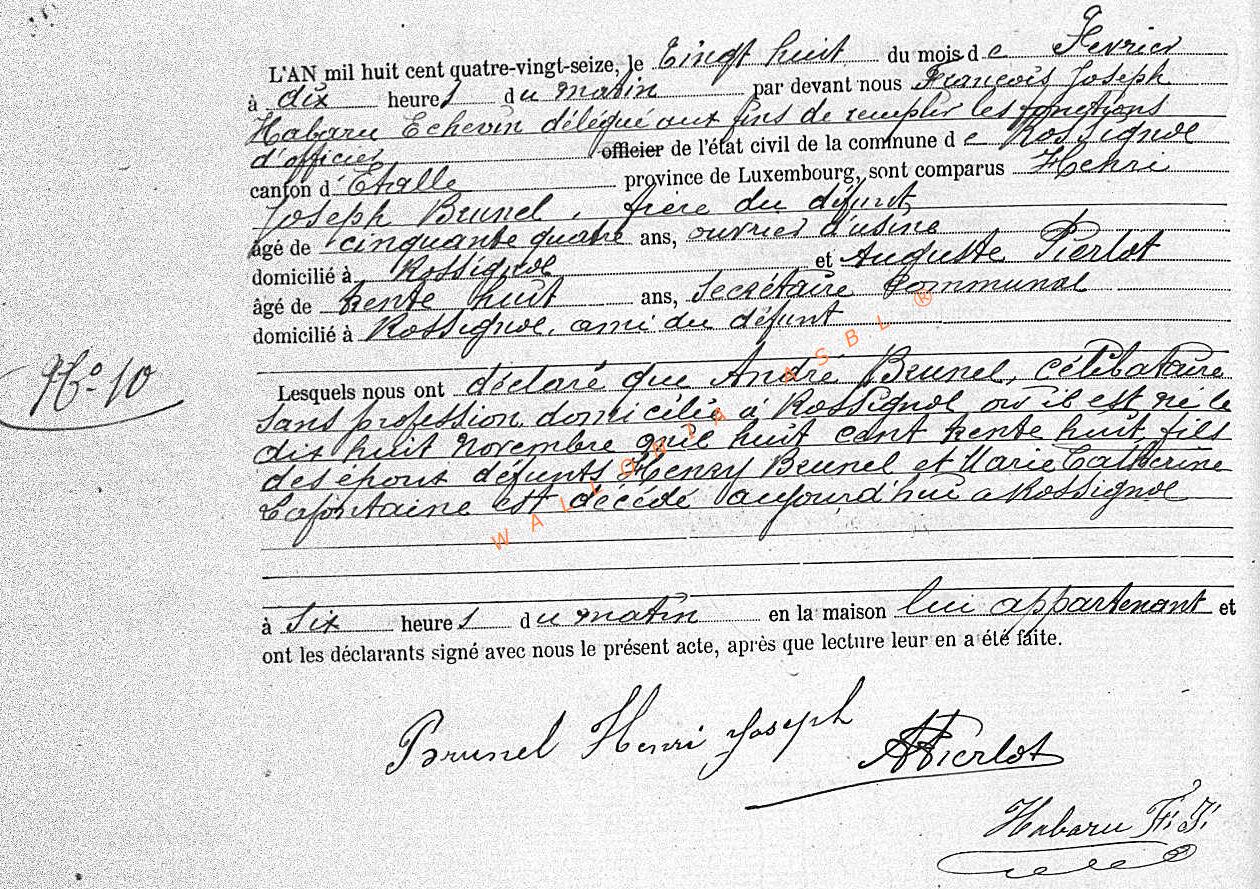 L'AN mil huit cent quatre-vingt-seize, le Vingt huit du mois de Fevrier
à dix heures du matin par devant nous François Joseph
Habaru Echevin délégué aux fins de remplir les fonctions
d'officier officier de l'état civil de la commune de Rossignol
canton d'Etalle province de Luxembourg, sont comparus Henri
Joseph Brunel, frère du défunt
âgé de cinquante quatre ans, ouvrier d'usine
domicilié à Rossignol et Auguste Pierlot
âgé de trente huit ans, Secrétaire Communal
domicilié à Rossignol, ami du défunt
N° 10
Lesquels nous ont déclaré que André Brunel, célibataire
sans profession domicilié à Rossignol où il est né le
dix huit Novembre mil huit cent trente huit fils
des époux défunts Henry Brunel et Marie Catherine
Lafontaine est décédé aujourd'hui a Rossignol
à six heures du matin en la maison lui appartenant et
ont les déclarants signé avec nous le présent acte, après que lecture leur en a été faite.
Brunel Henri Joseph
APierlot
Habaru F. J.
WALLONIA ASBL ®